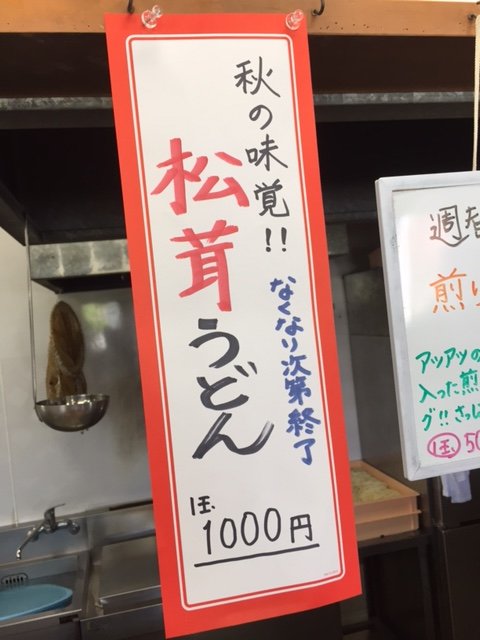 秋の味覚!!
松茸うどん
なくなり次第終了
1玉、
1000円
週替
煎り
アツアツの
入った煎
グ!!さっし
1玉、50